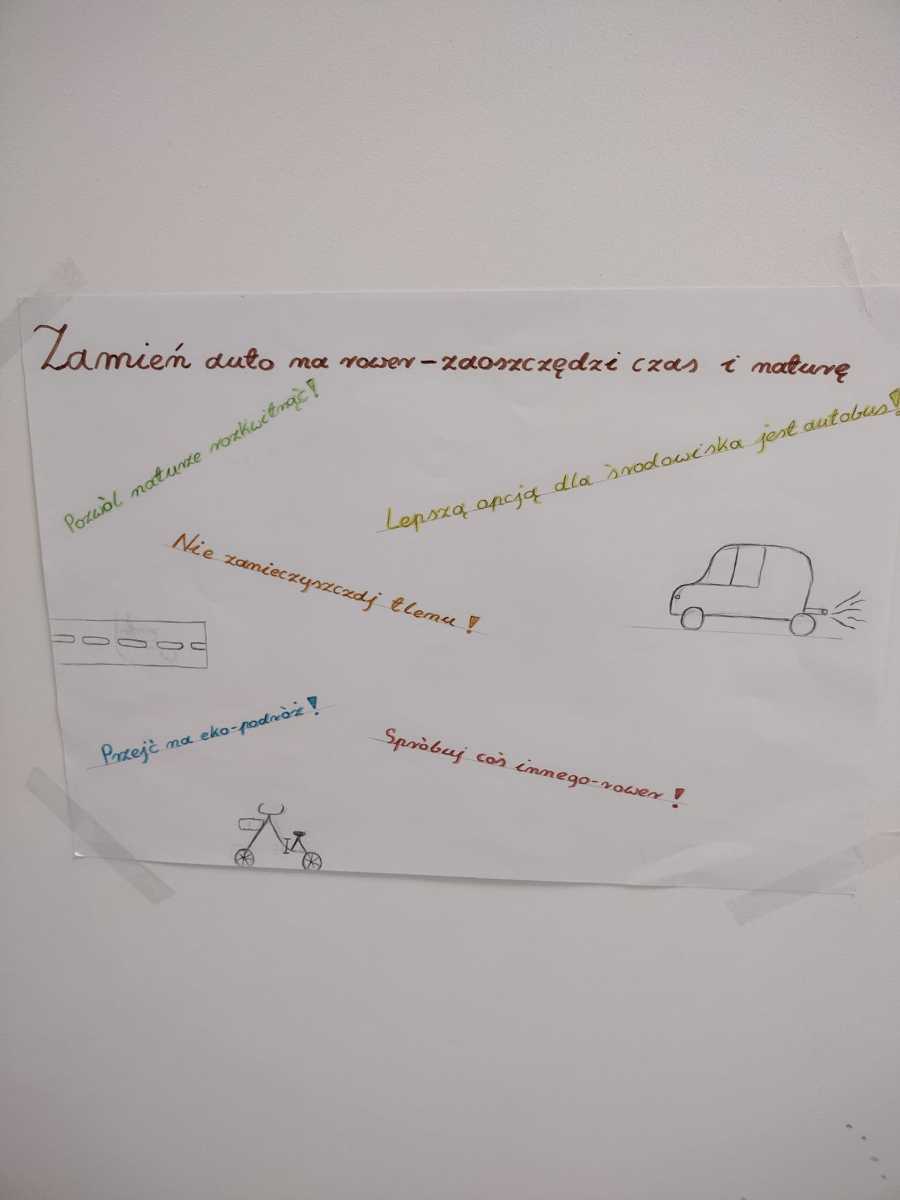 Zamień auto na rower-zaoszczędzi czas i naturę
Pozwòl naturze rozkwitnąć!
Lepszą opcją dla środowiska jest autobus!
Nie zanieczyszczaj tlenu!
Przejć na eko-podròż!
Spròbuj coś innego-rower!